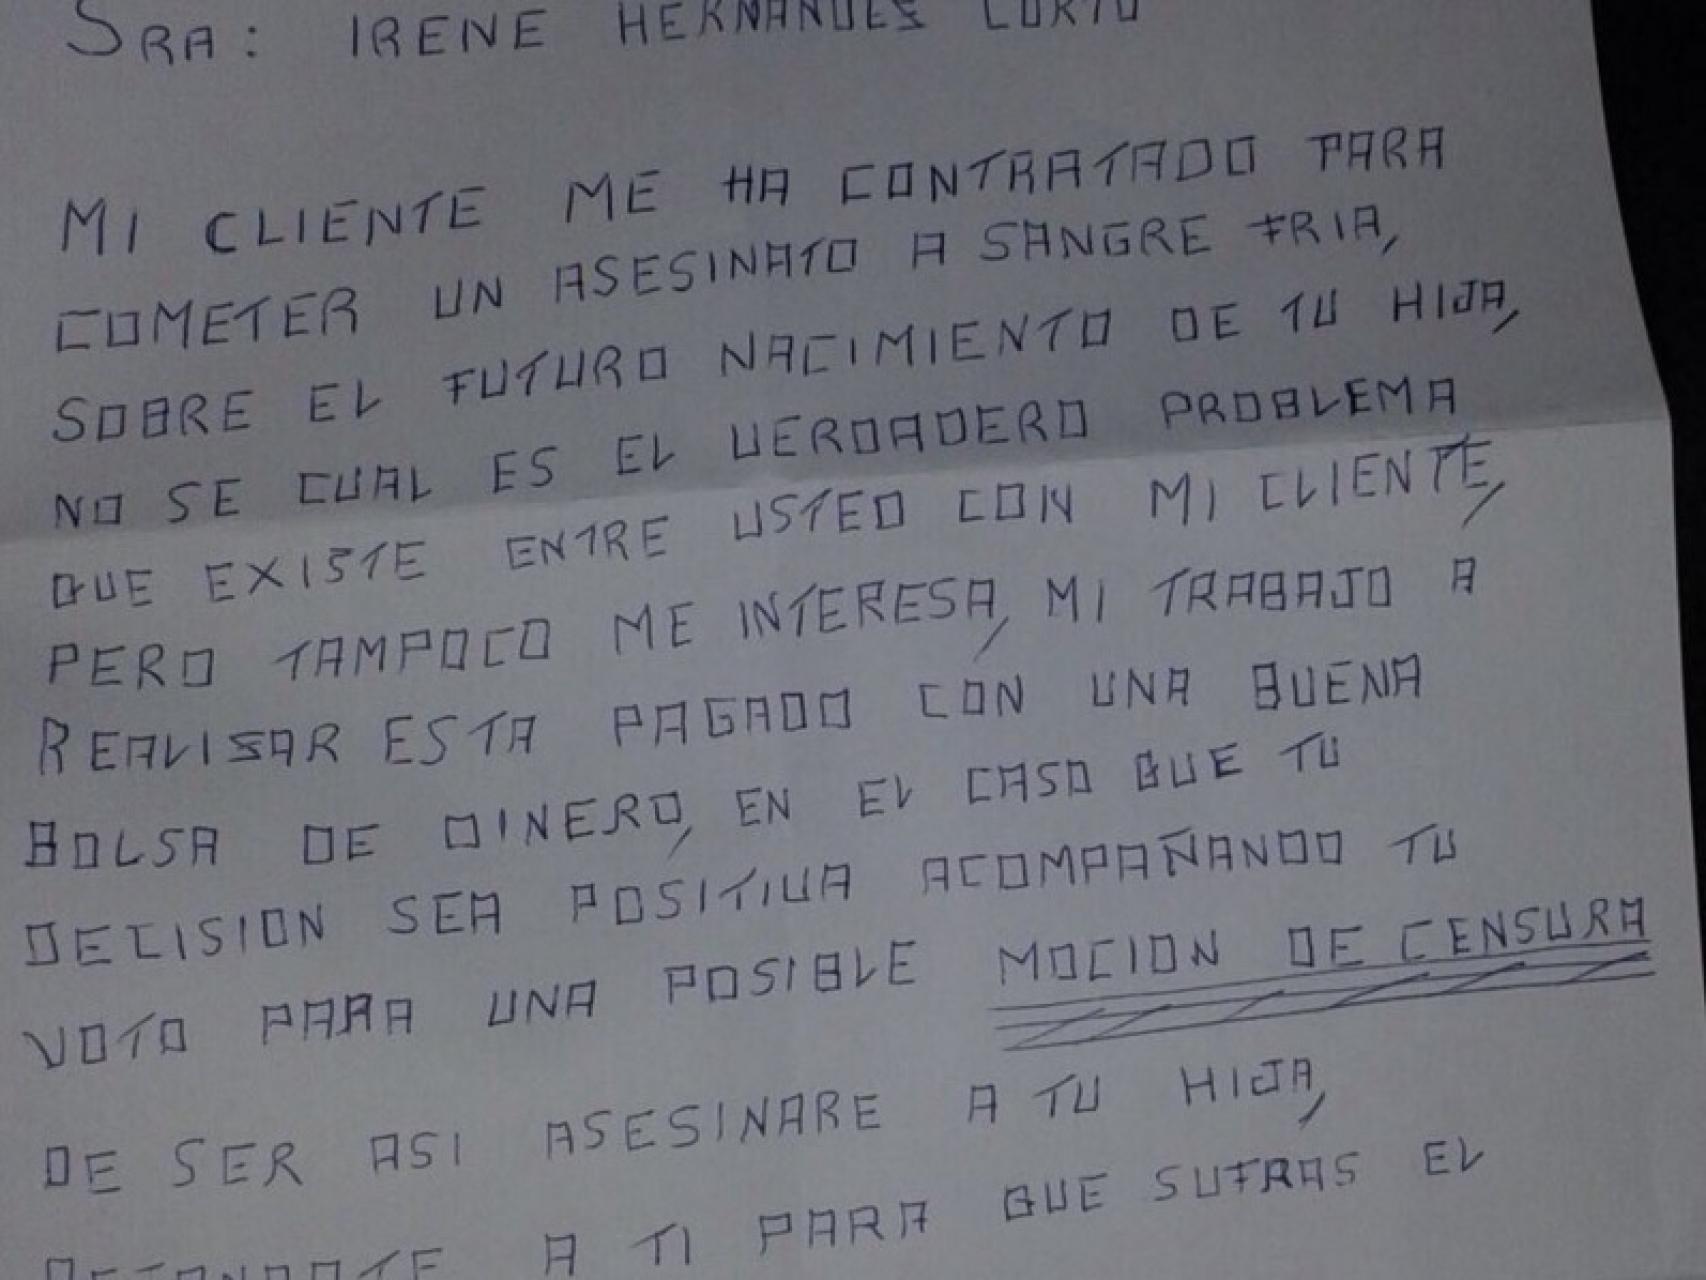 SRA: IRENE HERNANDES CURTO
MI CLIENTE ME HA CONTRATADO PARA
COMETER UN ASESINATO A SANGRE FRIA,
SOBRE EL FUTURO NACIMIENTO DE TU HIJA,
NO SE CUAL ES EL VERDADERO PROBLEMA
QUE EXISTE ENTRE USTED CON MI CLIENTE,
PERO TAMPOCO ME INTERESA, MI TRABAJO A
REALISAR ESTA PAGADO CON UNA BUENA
BOLSA DE DINERO, EN EL CASO QUE TU
DECISION SEA POSITIVA ACOMPAÑANDO TU
VOTO PARA UNA POSIBLE MOCION DE CENSURA
DE SER ASI ASESINARE A TU HIJA,
DEJANDOTE A TI PARA QUE SUFRAS EL